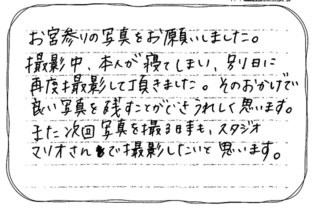 お宮参りの写真をお願いしました。
撮影中、本人が寝てしまい、別日に
再度撮影して頂きました。そのおかげで
良い写真を残すことができうれしく思います。
また次回写真を撮る時も、スタジオ
マリオさんで撮影したいと思います。